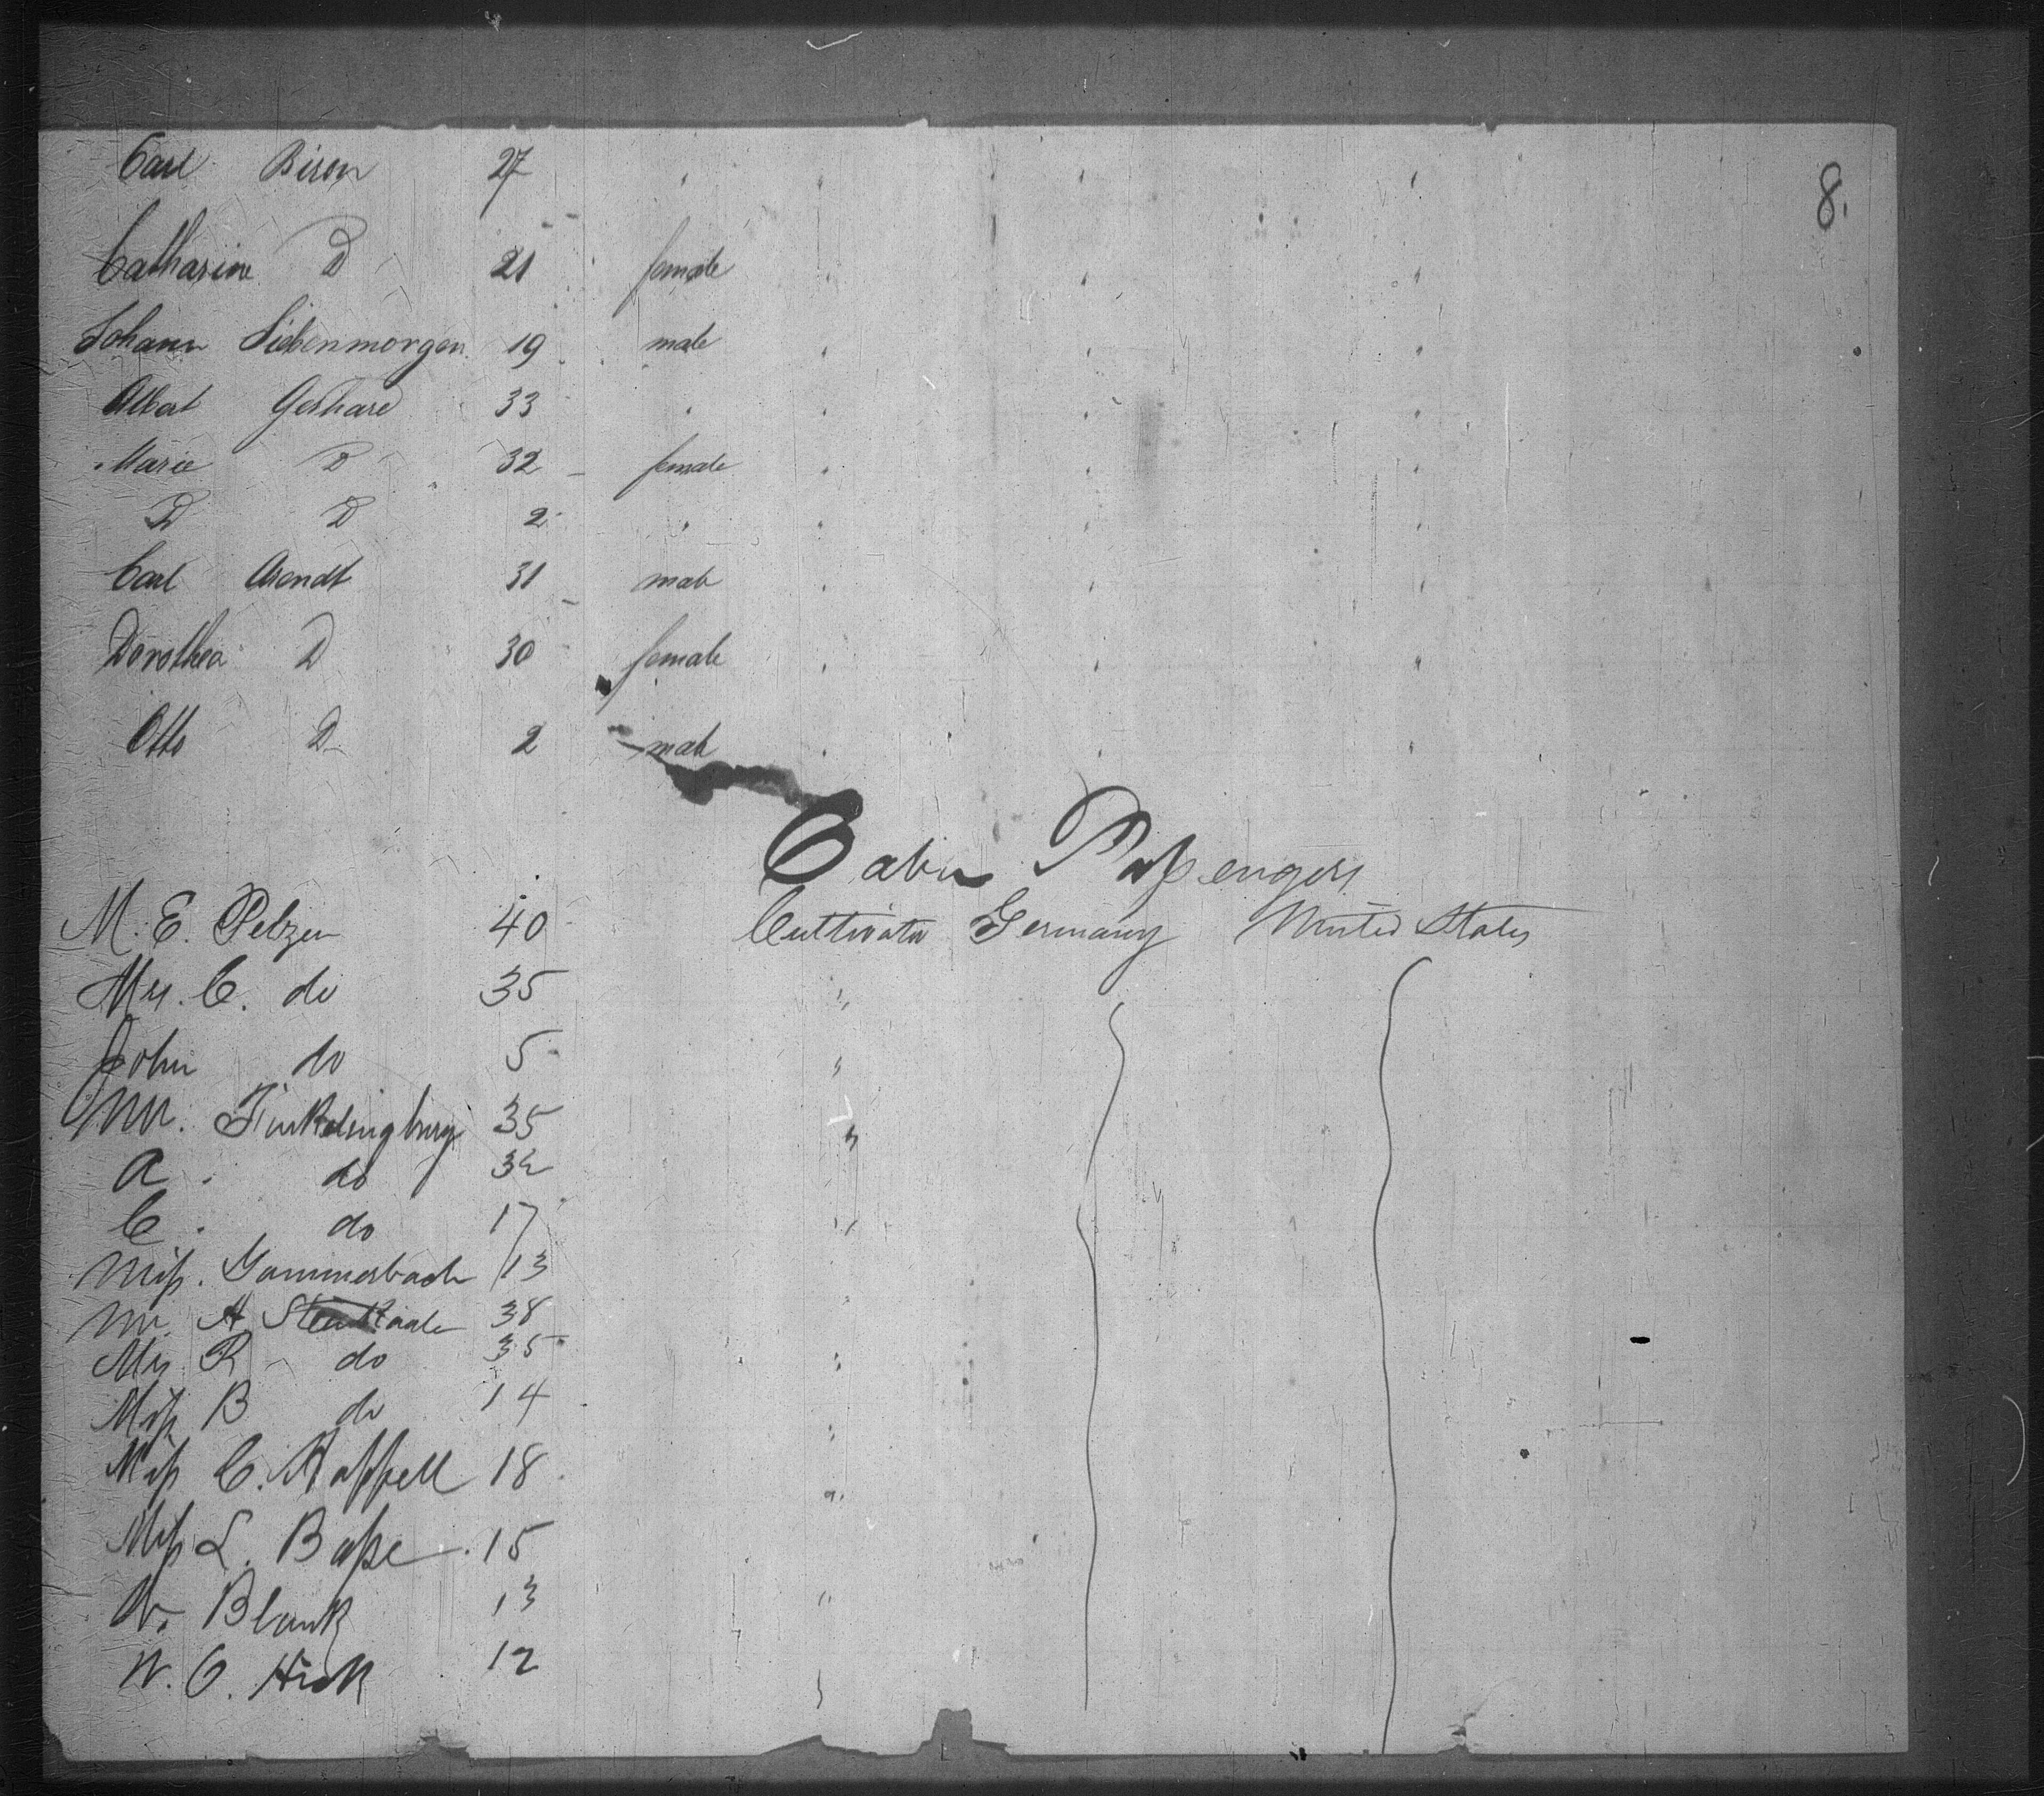 8.
Carl Biron 27 " " " " "
Catharine D 21 female " " "
Johann Siebenmorgen 19 male " " "
Albert Gerhard 33 " " " "
Marie D 32 female " " "
D D 2 " " " "
Carl Arendt 31 male " " "
Dorothea D 30 female " " "
Otto D 2 male " " "
Cabin Passengers
M. E. Pelzer 40 Cultivator Germany United States
Mrs. C. do 35 "
John do 5 "
Mr. Finkelingburg 35 "
A. do 32
C. do 17 "
Miss. Gammersbach 13
Mr. A 38
Mrs R do 35 "
Miss B do 14 "
Miss C. Kappell 18 "
Miss L. Basse 15
W. Blank 13 "
W. O. 12 "